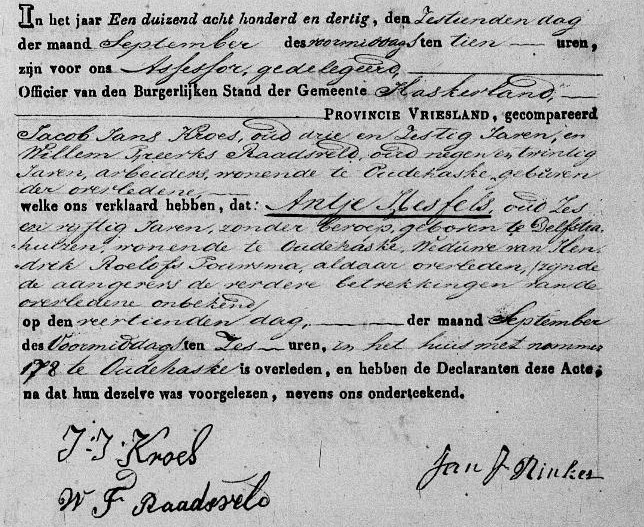 In het jaar Een duizend acht honderd en dertig, den Zestienden dag
der maand September des voormiddags ten tien uren,
zijn voor ons Assessor, gedelegeerd,
Officier van den Burgerlijken Stand der Gemeente Haskerland,
PROVINCIE VRIESLAND, gecompareerd
Jacob Jans Kroes, oud drie en Zestig Jaren, en
Willem Freerks Raadsveld, oud negen en twintig
Jaren, arbeiders, wonende te Oudehaske, geburen
der overledene,
welke ons verklaard hebben, dat: Antje, oud Zes
en vyftig Jaren, zonder beroep, geboren te Delfstra-
huizen, wonende te Oudehaske, Weduwe van Hen-
drik Roelofs Poursma, aldaar overleden, zynde
de aangevers de verdere betrekkingen van de
overledene onbekend,
op den veertienden dag, der maand September
des Voormiddags ten Zes uren, in het huis met nommer
178 te Oudehaske is overleden, en hebben de Declaranten deze Acte,
na dat hun dezelve was voorgelezen, nevens ons onderteekend.
J. J. Kroes
Jan J Rinkes
W F Raadsveld